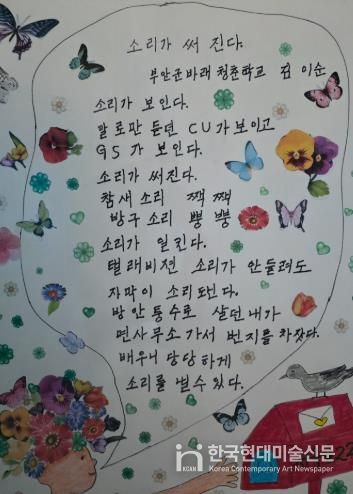 소리가 써 진다.
부안군바래 청춘학교 김 이순
소리가 보인다.
말로만 듣던 CU가 보이고
GS 가 보인다.
소리가 써진다.
참새 소리 짹 짹
방구 소리 뿡 뿡
소리가 일킨다.
텔래비젼 소리가 안들려도
자막이 소리 되넌다.
방안퉁수로 살던 내가
면사무소 가서 번지를 하잤다.
배우니 당당하게
소리를 낼수 있다.
22
KCAN
한국현대미술신문
Korea Contemporary Art Newspaper